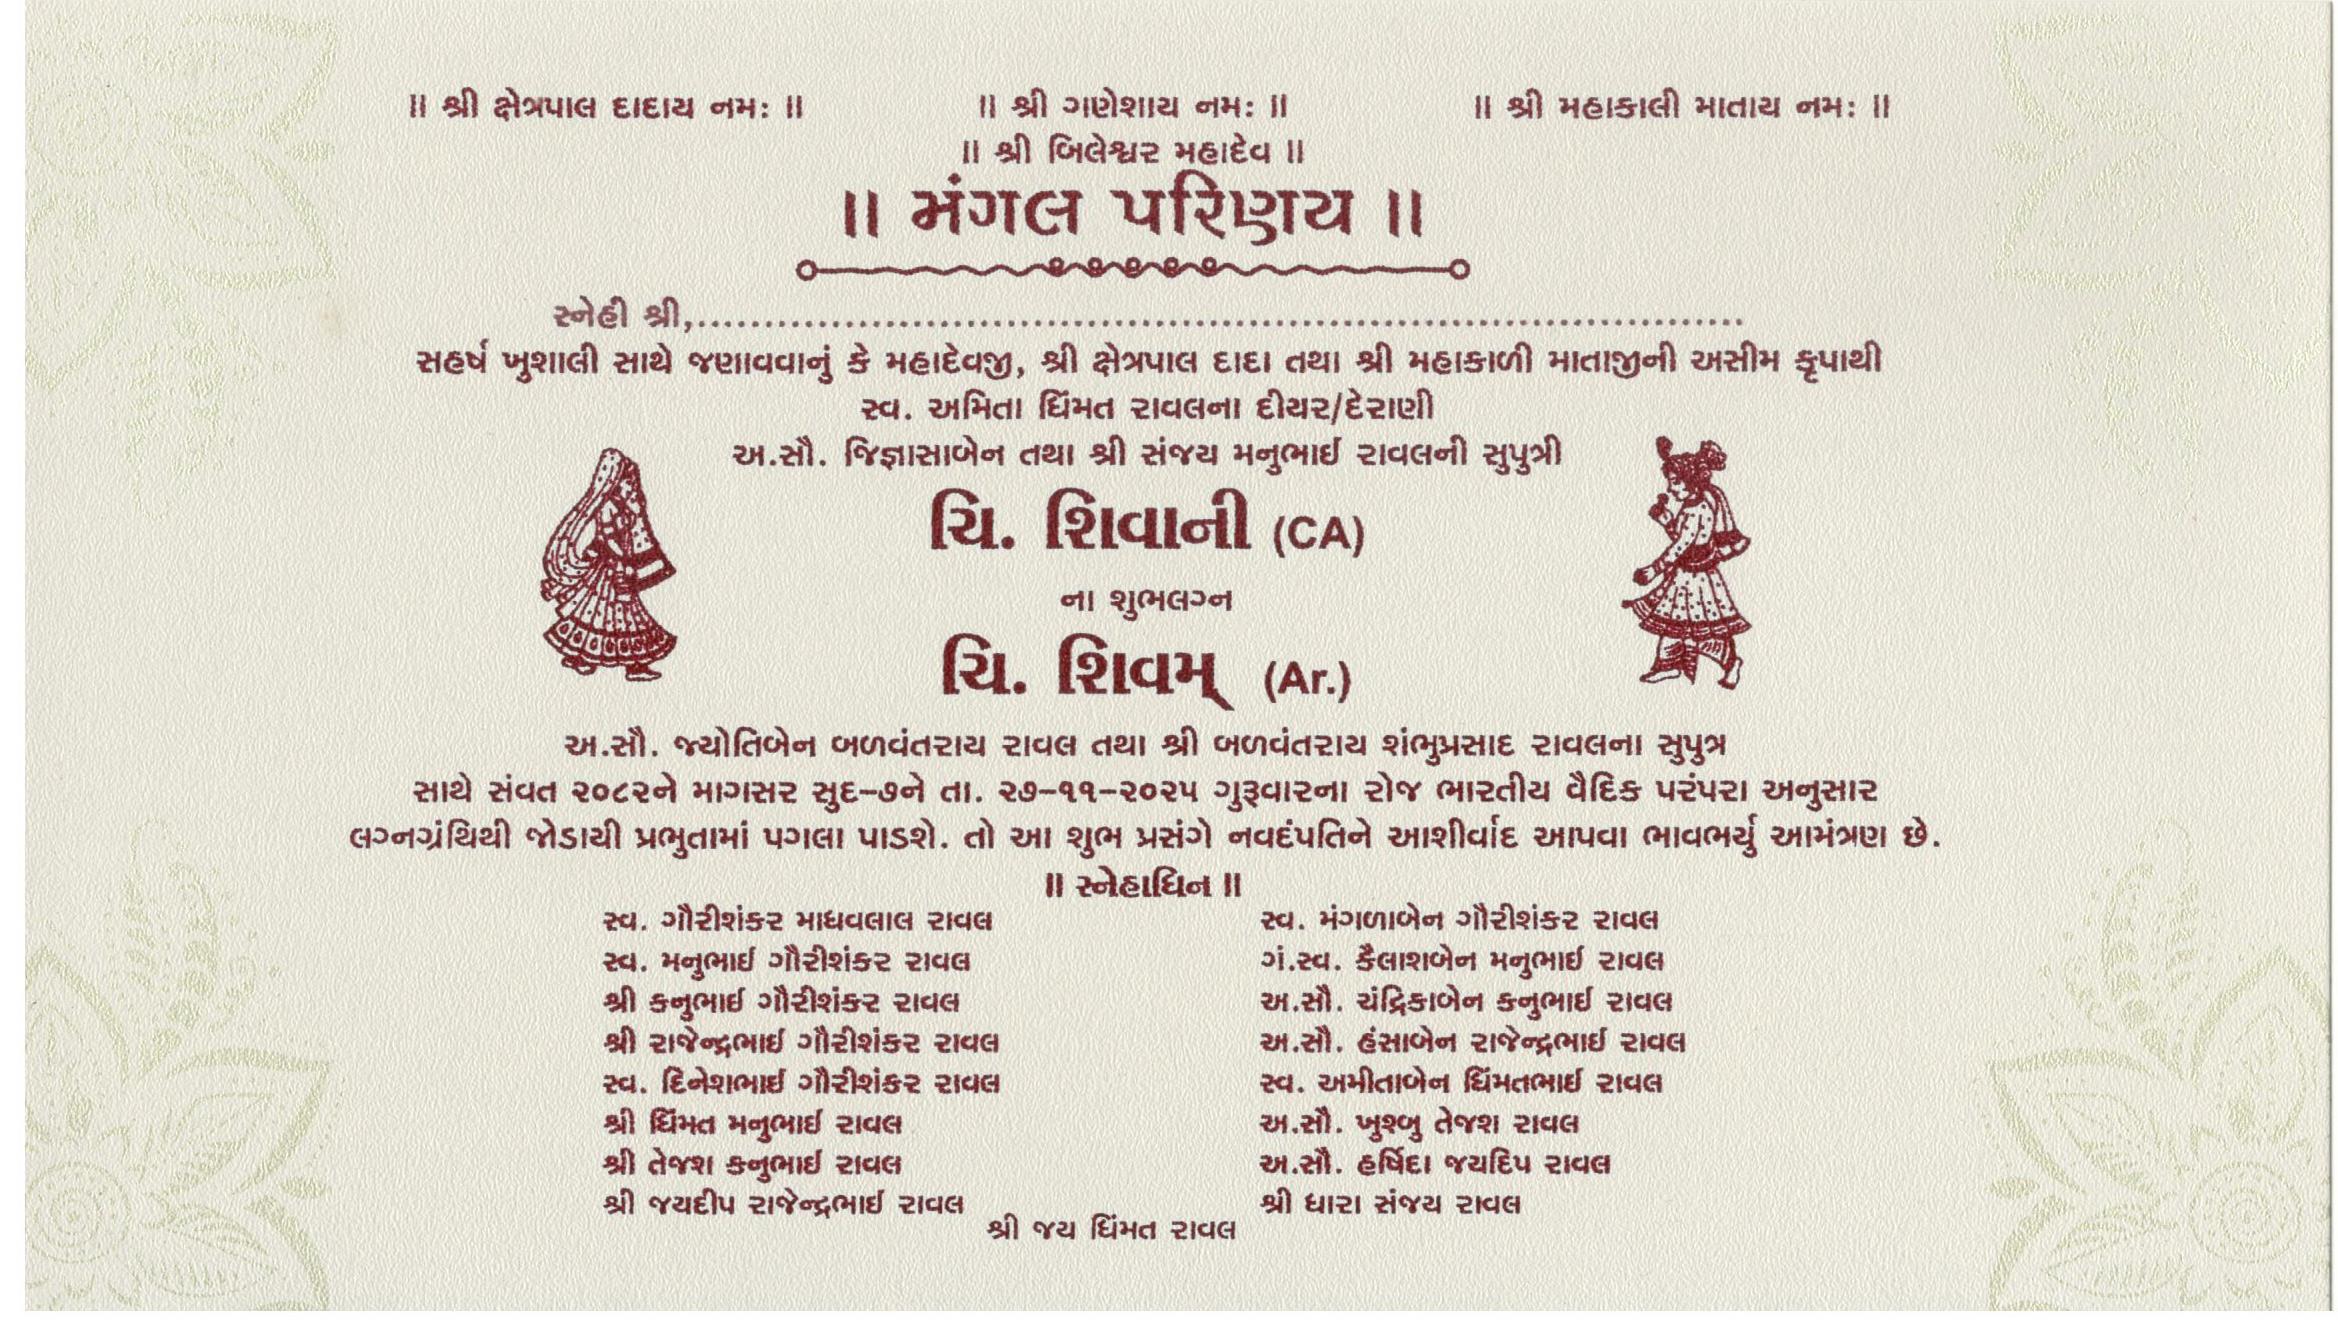 ॥ શ્રી ક્ષેત્રપાલ દાદાય નમઃ ॥ ॥ શ્રી ગણેશાય નમઃ ॥ ॥ શ્રી મહાકાલી માતાય નમઃ ॥
॥ શ્રી બિલેશ્વર મહાદેવ ॥
॥ મંગલ પરિણય ॥
સ્નેહી શ્રી,..............................................................................
સહર્ષ ખુશાલી સાથે જણાવવાનું કે મહાદેવજી, શ્રી ક્ષેત્રપાલ દાદા તથા શ્રી મહાકાળી માતાજીની અસીમ કૃપાથી
સ્વ. અમિતા ધિંમત રાવલના દીયર/દેરાણી
અ.સૌ. જિજ્ઞાસાબેન તથા શ્રી સંજય મનુભાઈ રાવલની સુપુત્રી
ચિ. શિવાની (CA)
ના શુભલગ્ન
ચિ. શિવમ્ (Ar.)
અ.સૌ. જ્યોતિબેન બળવંતરાય રાવલ તથા શ્રી બળવંતરાય શંભુપ્રસાદ રાવલના સુપુત્ર
સાથે સંવત ૨૦૮૨ને માગસર સુદ-૭ને તા. ૨૭-૧૧-૨૦૨૫ ગુરૂવારના રોજ ભારતીય વૈદિક પરંપરા અનુસાર
લગ્નગ્રંથિથી જોડાયી પ્રભુતામાં પગલા પાડશે. તો આ શુભ પ્રસંગે નવદંપતિને આશીર્વાદ આપવા ભાવભર્યુ આમંત્રણ છે.
॥ સ્નેહાધિન ॥
સ્વ. ગૌરીશંકર માધવલાલ રાવલ સ્વ. મંગળાબેન ગૌરીશંકર રાવલ
સ્વ. મનુભાઈ ગૌરીશંકર રાવલ ગં.સ્વ. કૈલાશબેન મનુભાઈ રાવલ
શ્રી કનુભાઈ ગૌરીશંકર રાવલ અ.સૌ. ચંદ્રિકાબેન કનુભાઈ રાવલ
શ્રી રાજેન્દ્રભાઈ ગૌરીશંકર રાવલ અ.સૌ. હંસાબેન રાજેન્દ્રભાઈ રાવલ
સ્વ. દિનેશભાઈ ગૌરીશંકર રાવલ સ્વ. અમીતાબેન ધિંમતભાઈ રાવલ
શ્રી ધિંમત મનુભાઈ રાવલ અ.સૌ. ખુશ્બુ તેજશ રાવલ
શ્રી તેજશ કનુભાઈ રાવલ અ.સૌ. હર્ષિદા જયદિપ રાવલ
શ્રી જયદીપ રાજેન્દ્રભાઈ રાવલ શ્રી ધારા સંજય રાવલ
શ્રી જય ધિંમત રાવલ